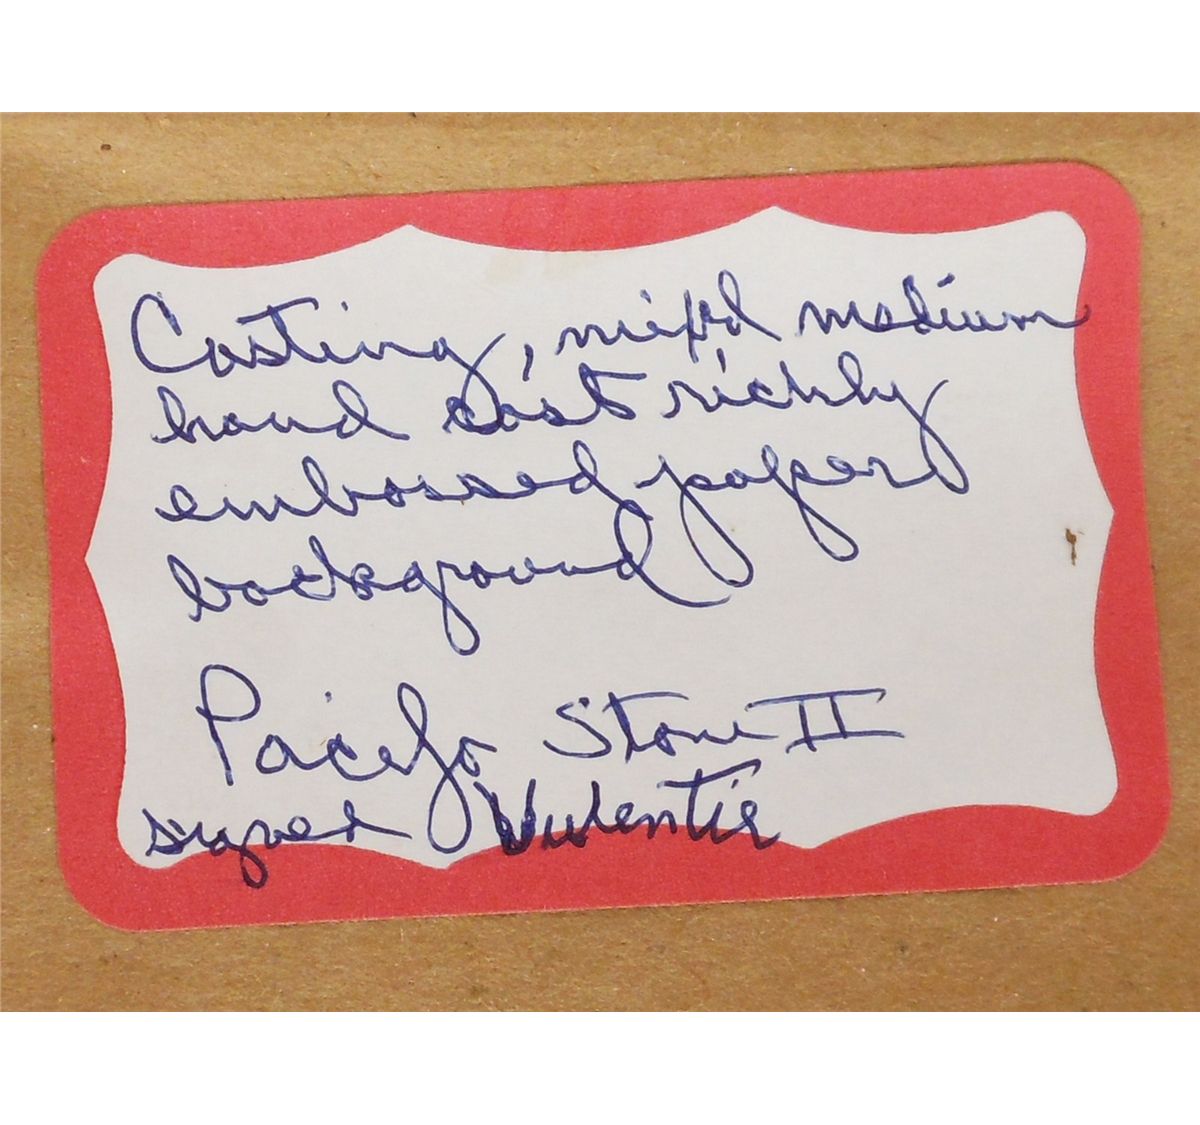 Casting, mixed medium
hand cast richly
embossed paper
background
Stone II
signed